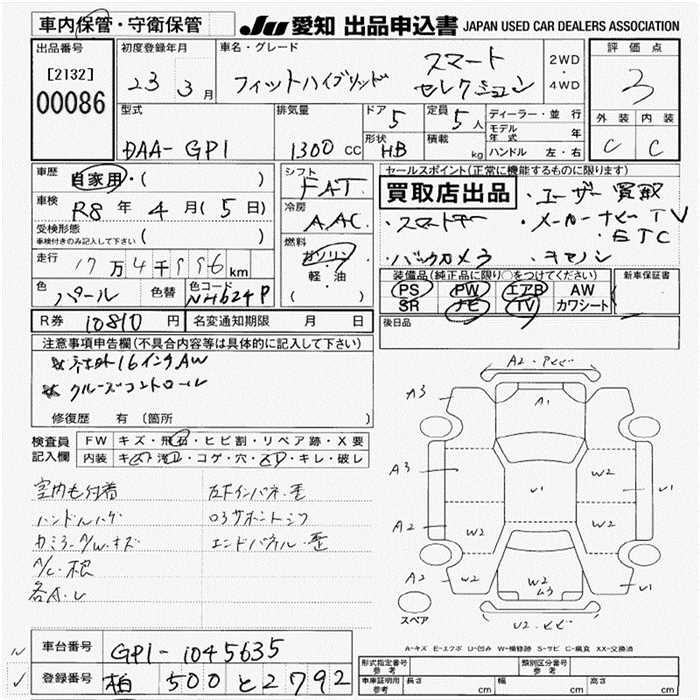 車内保管・守衛保管
JU 愛知 出品申込書 JAPAN USED CAR DEALERS ASSOCIATION
出品番号
[2132]
00086
初度登録年月
23 3月
車名・グレード
フィットハイブリッド
スマート
セレクション
2WD
・
4WD
評価点
3
外装 内装
C C
型式
DAA-GP1
排気量
1300 CC
ドア 5
形状 HB
定員 5人
積載 kg
ディーラー・並行
モデル年式 年
ハンドル 左・右
車歴
自家用・( )
車検
R8年4月(5日)
受検形態
車検付きのみ記入して下さい ( )
走行
17万4千996km
色
パール
色替
色コード
NH624P
シフト
FAT
冷房
AAC
燃料
ガソリン
軽・油
( )
セールスポイント(正常に機能するものに限ります)
買取店出品
・ユーザー買取
・スマートキー ・メーカーナビTV
ETC
・バックカメラ
装備品(純正品に限り○をつけてください)
PS PW エアB AW
SR ナビ TV カワシート
新車保証書
後日品
R券 10810円
名変通知期限 月 日
注意事項申告欄(不具合内容等は具体的に記入して下さい)
★社外16インチAW
★クルーズコントロール
修復歴 有 (箇所 )
検査員記入欄
FW キズ・飛石・ヒビ割・リペア跡・X要
内装 キズ・汚レ・コゲ・穴・スレ・キレ・破レ
ハンドルハゲ
エンドパネル・歪
各A・U
A2・ヒビ
A3 A1
A3 U1 W2 U1
A2 W2 W2
A2 W2 U1
U2・ヒビ
スペア
A-キズ E-エクボ U-凹み W-補修跡 S-サビ C-腐食 XX-交換済
車台番号
GP1-1045635
登録番号
柏 500 と 2792
形式指定番号
参考
類別区分番号
参考
車庫証明用
参考
長さ cm
幅 cm
高さ cm